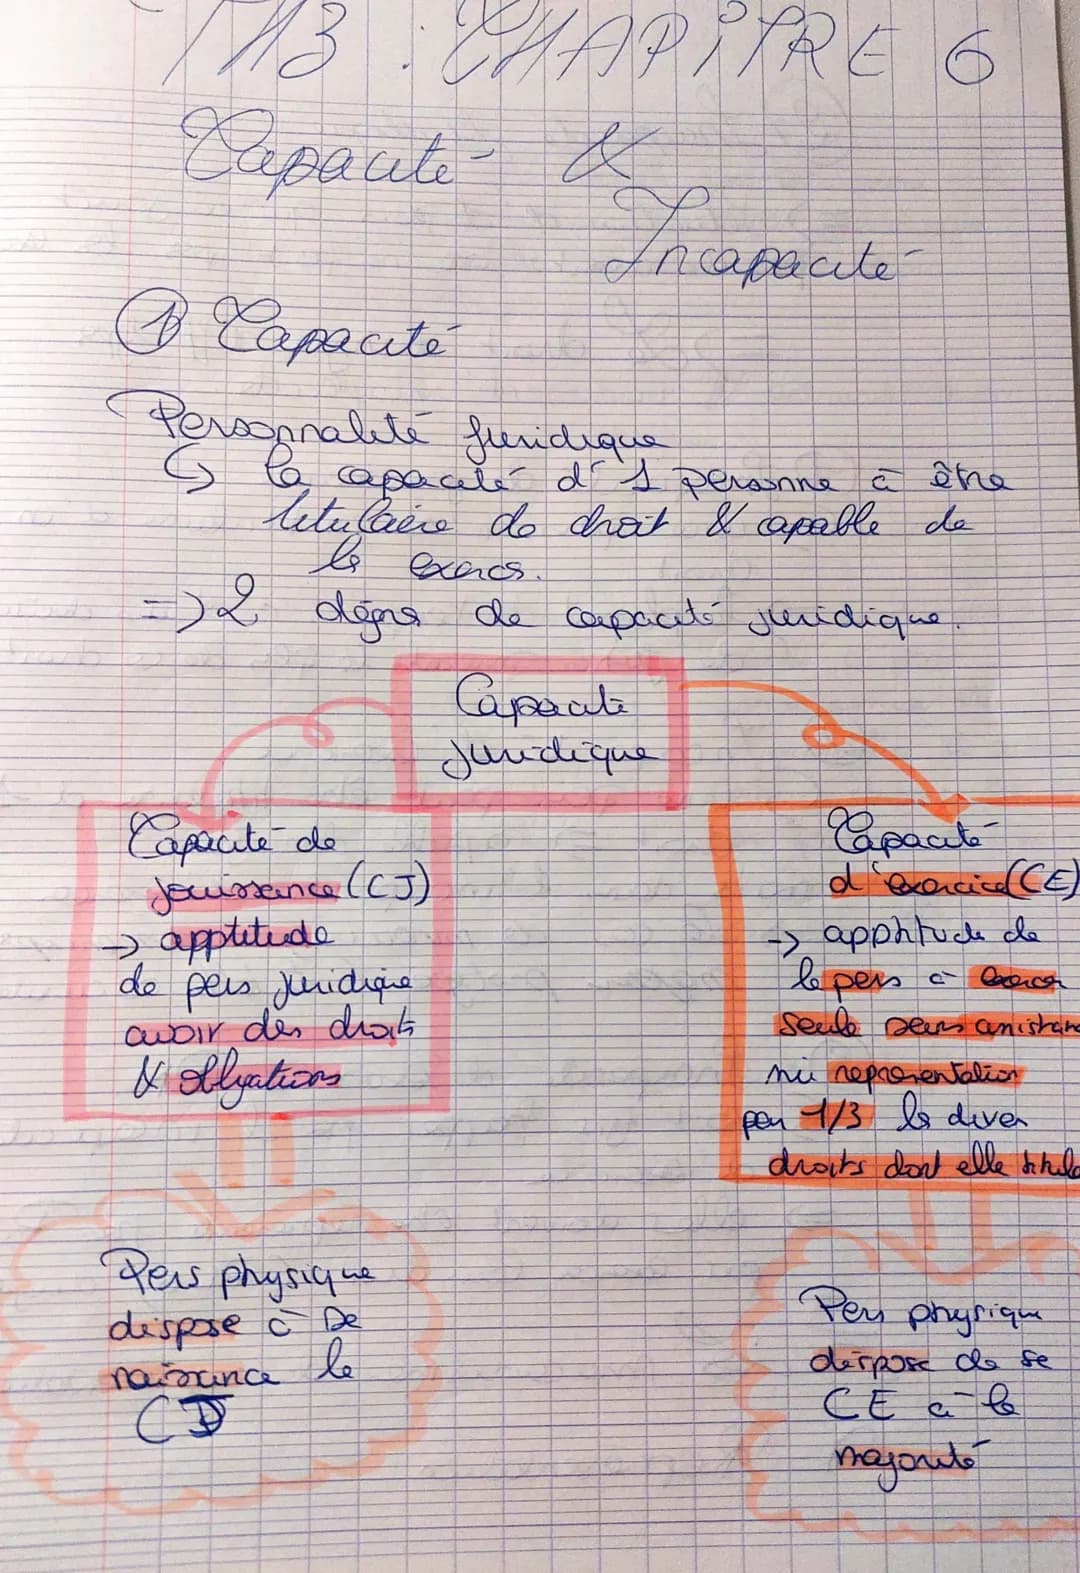 TH3 : CHAPITRE 6
Capacité &
Incapacité
① Capacité
Personnalité juridique
↳ la capacité d'1 personne à être
titulaire de droit & capable de
les exercs.
=> 2 degrs de capacité juridique.
Capacité
juridique
Capacité de
jouissance (CJ)
-> apptitude
de pers juridique
avoir des droits
& obligations
Pers physique
dispose à sa
naissance la
CJ
Capacité
d'exercice (CE)
-> apphtude de
la pers à exercer
seule sans assistan
ni representation
par 1/3 les diver
droits dont elle titula
Pers physique
dispose de sa
CE à la
majorité